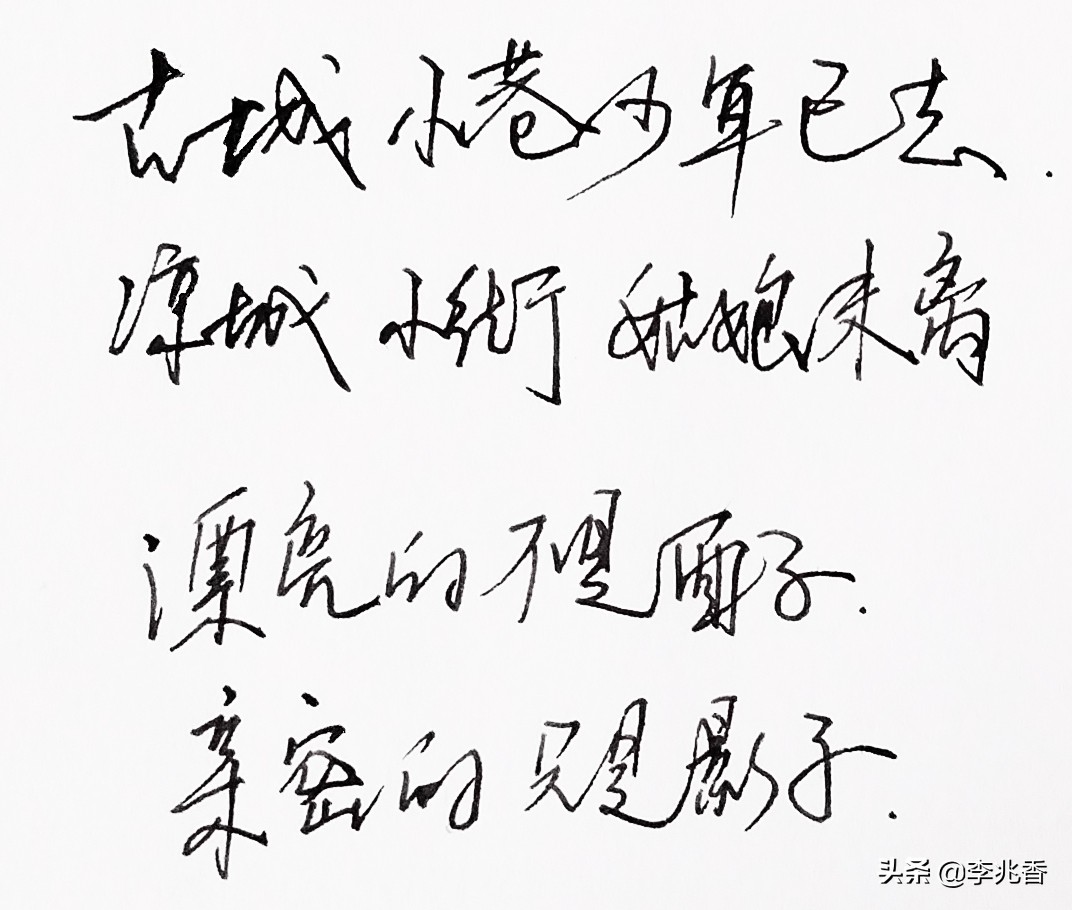 古城 小巷少年已去.
凉城 小街 姑娘未离
漂亮的不是面子.
亲密的只是影子.
头条 @李兆香